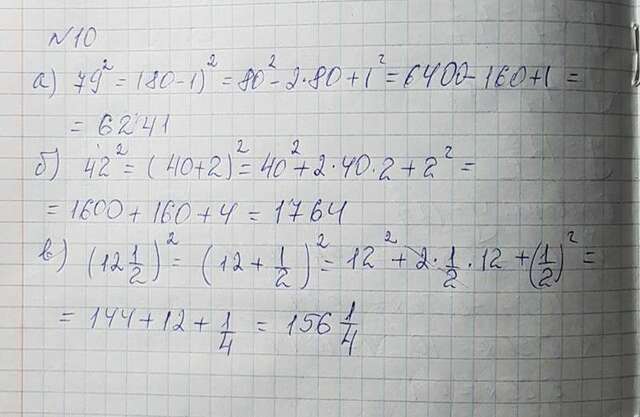 №10
а) 79² = (80-1)² = 80² - 2·80 + 1² = 6400 - 160 + 1 =
= 6241
б) 42² = (40+2)² = 40² + 2·40·2 + 2² =
= 1600 + 160 + 4 = 1764
в) (12 1/2)² = (12 + 1/2)² = 12² + 2·1/2·12 + (1/2)² =
= 144 + 12 + 1/4 = 156 1/4